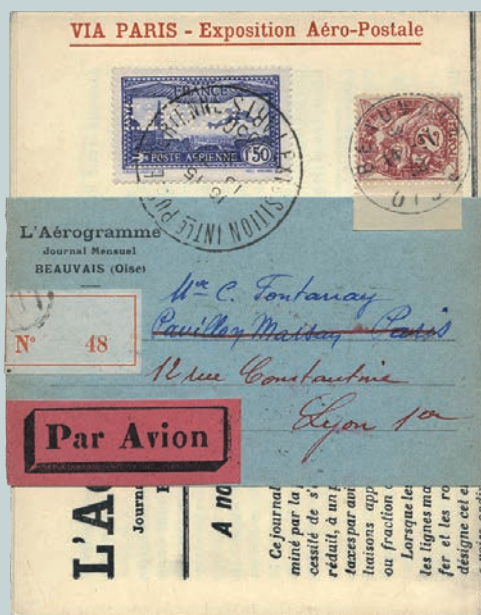 VIA PARIS - Exposition Aéro-Postale
FRANCE
POSTE AERIENNE
1f50
EXPOSITION INTLE
PARIS
BEAUVAIS
2
L'Aérogramme
Journal Mensuel
BEAUVAIS (Oise)
Mr C. Fontanay
Pavillon Marsan Paris
N° 48
12 rue Constantine
Lyon 1er
Par Avion
L'A
Journa
A no
Ce journal
miné par la p
cessité de s'
réduit, à un p
taxes par avi
liaisons app
ou fraction d
Lorsque les
les lignes ma
fer et les ro
désigne cet e